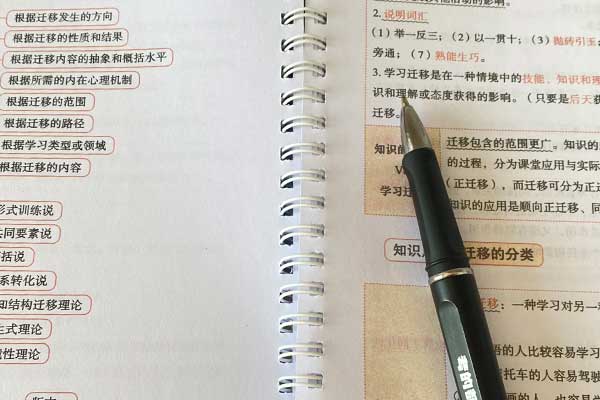 根据迁移发生的方向
根据迁移的性质和结果
根据迁移内容的抽象和概括水平
根据所需的内在心理机制
根据迁移的范围
根据迁移的路径
根据学习类型或领域
根据迁移的内容
形式训练说
共同要素说
括说
系转化说
知结构迁移理论
生式理论
性理论
2.说明词汇
(1)举一反三;(2)以一贯十;(3)抛砖引玉;
旁通;(7)熟能生巧。
3.学习迁移是在一种情境中的技能、知识和理
识和理解或态度获得的影响。(只要是后天获
迁移。
迁移包含的范围更广。知识的
知识的
的过程,分为课堂应用与实际
学习迁
(正迁移),而迁移可分为正迁
知识的应用是顺向正迁移、同
知识 迁移的分类
迁移:一种学习对另一
语的人比较容易学习
托车的人容易驾驶
的人,也容易学